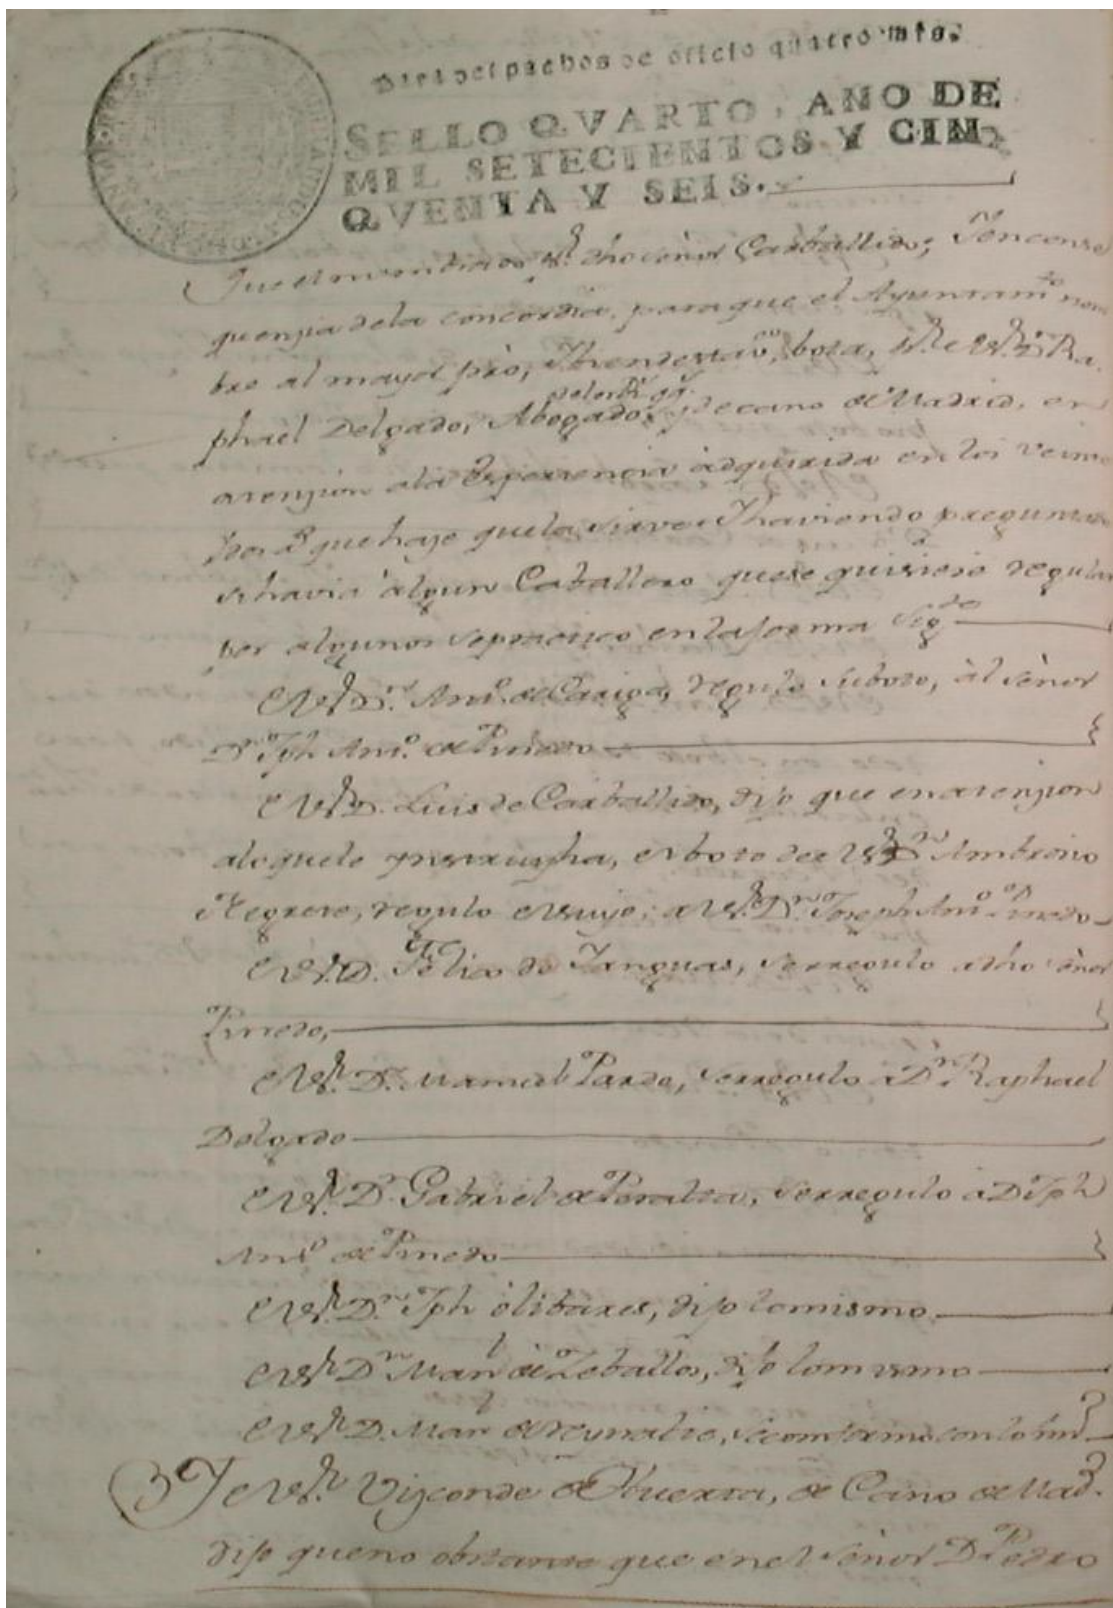 Para despachos de oficio quatro mrs.
SELLO QVARTO, AÑO DE
MIL SETECIENTOS Y CIN
QVENTA Y SEIS.
Que el dho señor Carballido; Y en conse
quenzia dela concordia, para que el Ayuntamto nom
bre al mayor bota, el Sr. Dn Ra
phael Delgado, Abogado delos Rs y decano de Madrid, en
atenzion ala Experiencia adquirida en los veinte
que haze que la sirve: Y haviendo preguntado
si havia algun Caballero que se quisiese regular
por algunos en la forma sigte
El Sr. Dn. Antº. de Cariga, regulo su boto, al señor
Dn Jph Antº. de Pinedo
El Sr. D. Luis de Carballido, dijo que en atenzion
alo que le el boto del Sr Dn Ambrosio
Negrete, regulo el suyo, al Sr. Dn. Joseph Antº Pinedo
El Sr. D. Felix de Yanguas, se regulo a dho señor
Pinedo,
El Sr. D. Manuel Pardo, se regulo à Dn. Raphael
Delgado
El Sr. Dn. Gabriel de Peralta, se regulo à Dn Jph
Antº de Pinedo
El Sr. Dn Jph Olibares, dijo lo mismo
El Sr. Dn Manl de Zeballos, dijo lo mismo
El Sr. D. Manl de Reynalte, se conformo con lo
Y el Sr. Vizconde de Huerta, de Cano de Madd.
dijo que no obstante que en el señor Dn Pedro